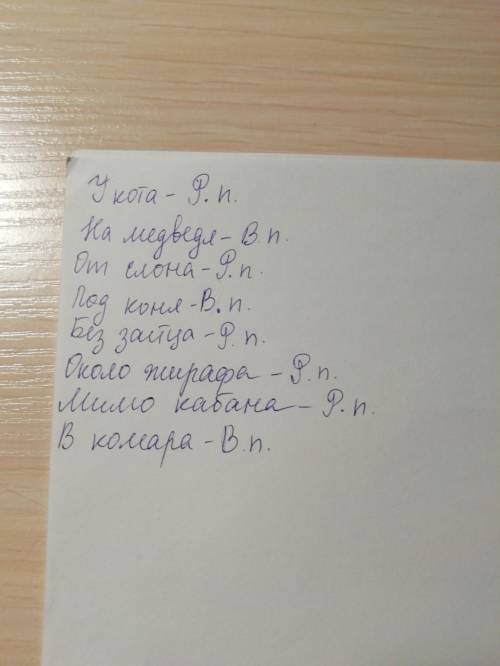 У кота - Р. п.
На медведя - В. п.
От слона - Р. п.
Под коня - В. п.
Без зайца - Р. п.
Около жирафа - Р. п.
Мимо кабана - Р. п.
В комара - В. п.